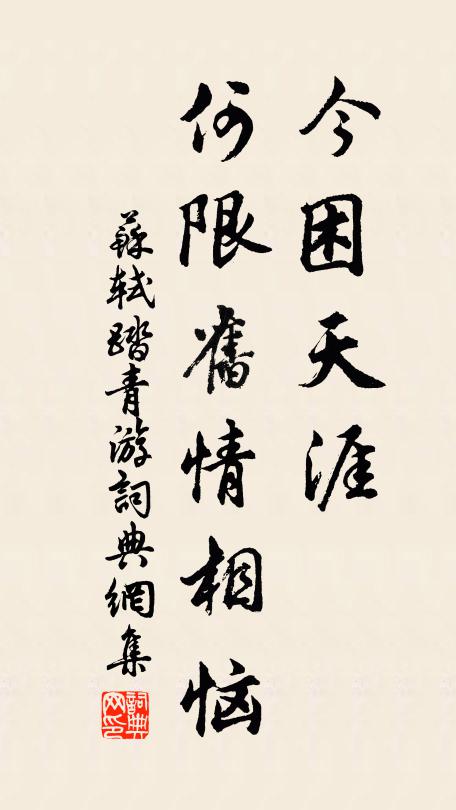 今困天涯
何限舊情相恼
蘇軾踏青游詞典網集
詞典网印